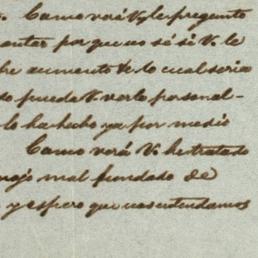 . Como verá V, le pregunto
antar por que no sé si V. le
he aumento de lo cual seria
so pueda V. verlo personal-
lo ha hecho ya por medio
Como verá V. he tratado
nojo mal fundado de
y espero que nos entendamos